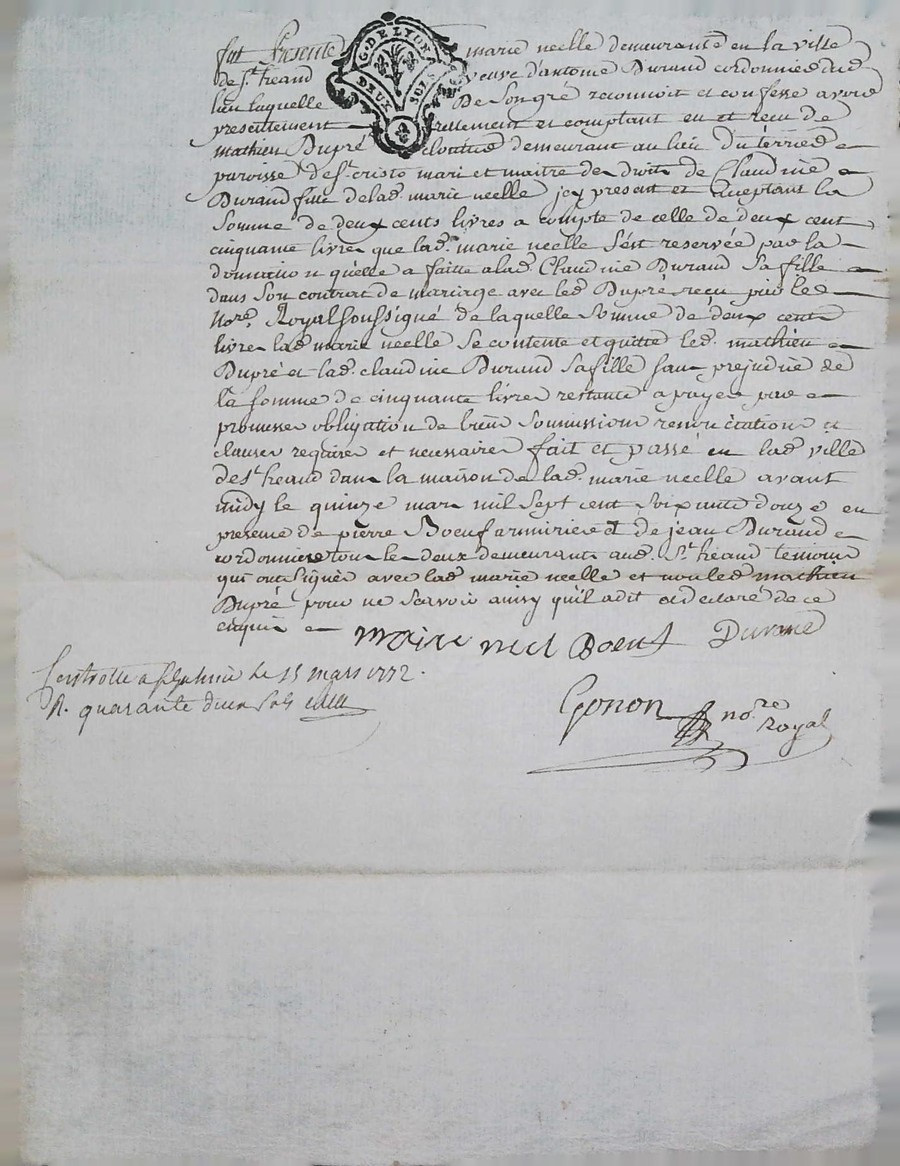 fut Presente marie neelle demeurante en la ville
de St. heand veuve d'antoine Durand cordonnier dud
lieu laquelle De Son gré reconnoit et confesse avoir
presentement reellement et comptant eu et recu de
mathieu Dupré cloutier demeurant au lieu du terrier
paroisse de St. cristo mari et maitre des droits de Claudine
Durand fille de lad. marie neelle icy present et acceptant la
Somme de deux cents livres a compte de celle de deux cent
cinquante livres que lad. marie neelle S'est reservée par la
donnation qu'elle a faitte a lad. Claudine Durand Sa fille
dans Son contrat de mariage avec led. Dupré recu par le
Nore. Royal Soussigné de laquelle Somme de deux cent
livres lad marie neelle Se contente et quitte led. mathieu
Dupré et lad. claudine Durand Sa fille Sans prejudice de
la Somme de cinquante livres restante a payer par
promesses obligation de biens Soumissions renonciations et
clauses requises et necessaires fait et passé en lad ville
de St. heand dans la maison de lad. marie neelle avant
midy le quinze mars mil Sept cent Soixante douze en
presence de pierre Boeuf armurier et de jean Durand
cordonnier tous les deux demeurants aud. St. heand temoins
qui ont Signés avec lad marie neelle et non led mathieu
Dupré pour ne Scavoir ainsy qu'il a dit et declaré de ce
enquis
marie neel Boeuf Durand
Controllé a St. le 15 mars 1772.
R. quarante deux Sols
Gonon nore Royal
G. DE LYON
DEUX SOLS